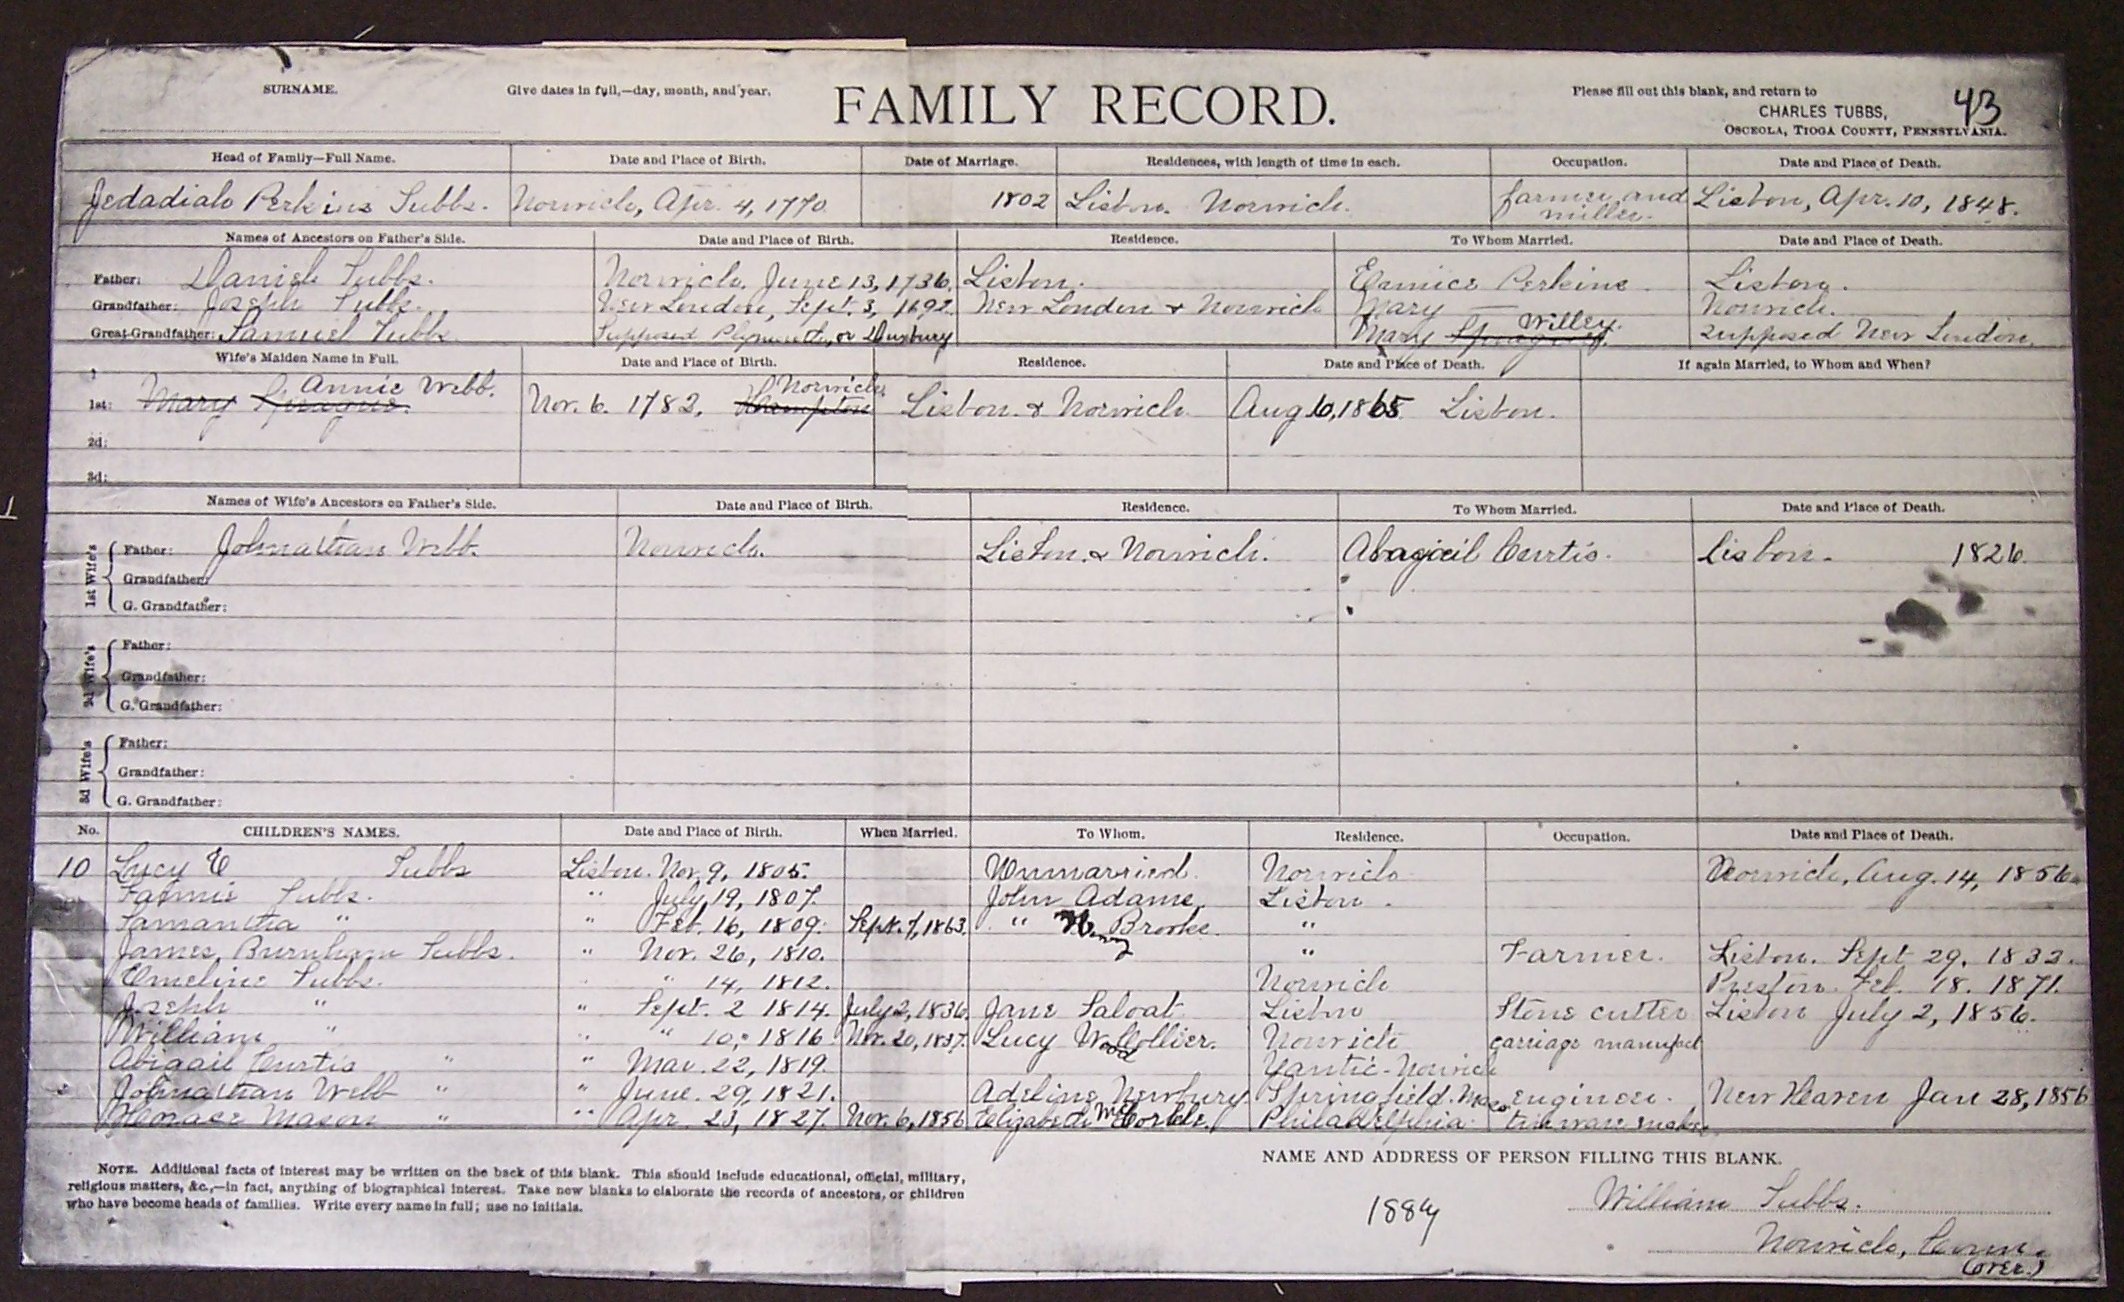 SURNAME. Give dates in full,—day, month, and year. FAMILY RECORD. Please fill out this blank, and return to 43
CHARLES TUBBS,
OSCEOLA, TIOGA COUNTY, PENNSYLVANIA.
Head of Family—Full Name. Date and Place of Birth. Date of Marriage. Residences, with length of time in each. Occupation. Date and Place of Death.
Jedadiah Perkins Tubbs. Norwich, Apr. 4, 1770 1802 Lisbon. Norwich. farmer and miller. Lisbon, Apr. 10, 1848.
Names of Ancestors on Father's Side. Date and Place of Birth. Residence. To Whom Married. Date and Place of Death.
Father: Daniel Tubbs. Norwich. June 13, 1736. Lisbon. Eunice Perkins. Lisbon.
Grandfather: Joseph Tubbs. New London, Sept. 3, 1692. New London & Norwich Mary — Norwich.
Great-Grandfather: Samuel Tubbs. Supposed Plymouth, or Duxbury Mary Willey. supposed New London.
Wife's Maiden Name in Full. Date and Place of Birth. Residence. Date and Place of Death. If again Married, to Whom and When?
Annie Webb. Norwich
1st: Mary Sprague. Nov. 6. 1782, Hampton Lisbon. & Norwich Aug 10, 1865 Lisbon.
2d:
3d:
Names of Wife's Ancestors on Father's Side. Date and Place of Birth. Residence. To Whom Married. Date and Place of Death.
1st Wife's
Father: Johnathan Webb. Norwich. Lisbon. & Norwich. Abagail Curtis. Lisbon. 1826.
Grandfather:
G. Grandfather:
2d Wife's
Father:
Grandfather:
G. Grandfather:
3d Wife's
Father:
Grandfather:
G. Grandfather:
No. CHILDREN'S NAMES. Date and Place of Birth. When Married. To Whom. Residence. Occupation. Date and Place of Death.
10 Lucy E Tubbs Lisbon. Nov. 9, 1805. Unmarried. Norwich Norwich, Aug. 14, 1856
Tubbs. " July 19, 1807. John Adams. Lisbon.
Samantha " " Feb. 16, 1809. Sept. 7, 1863. " Henry Brooks. "
James Burnham Tubbs. " Nov. 26, 1810. " Farmer. Lisbon. Sept 29, 1832.
Emeline Tubbs. " " 14, 1812. Norwich Preston. Feb. 18. 1871.
Joseph " " Sept. 2 1814. July 2, 1836. Jane Lisbon Stone cutter Lisbon July 2, 1856.
William " " " 10, 1816 Nov. 20, 1837. Lucy Wood Collier. Norwich carriage manufact
Abigail Curtis " " Mar. 22, 1819. Yantic-Norwich
Johnathan Webb " " June. 29, 1821. Adeline Newbury Springfield. Mass engineer. New Haven Jan 28, 1856
Horace Mason " " Apr. 23, 1827. Nov. 6, 1856 Elizabeth Philadelphia. tin ware maker.
NOTE. Additional facts of interest may be written on the back of this blank. This should include educational, official, military,
religious matters, &c.,—in fact, anything of biographical interest. Take new blanks to elaborate the records of ancestors, or children
who have become heads of families. Write every name in full; use no initials.
NAME AND ADDRESS OF PERSON FILLING THIS BLANK.
William Tubbs.
1889
Norwich, Conn.
(over.)